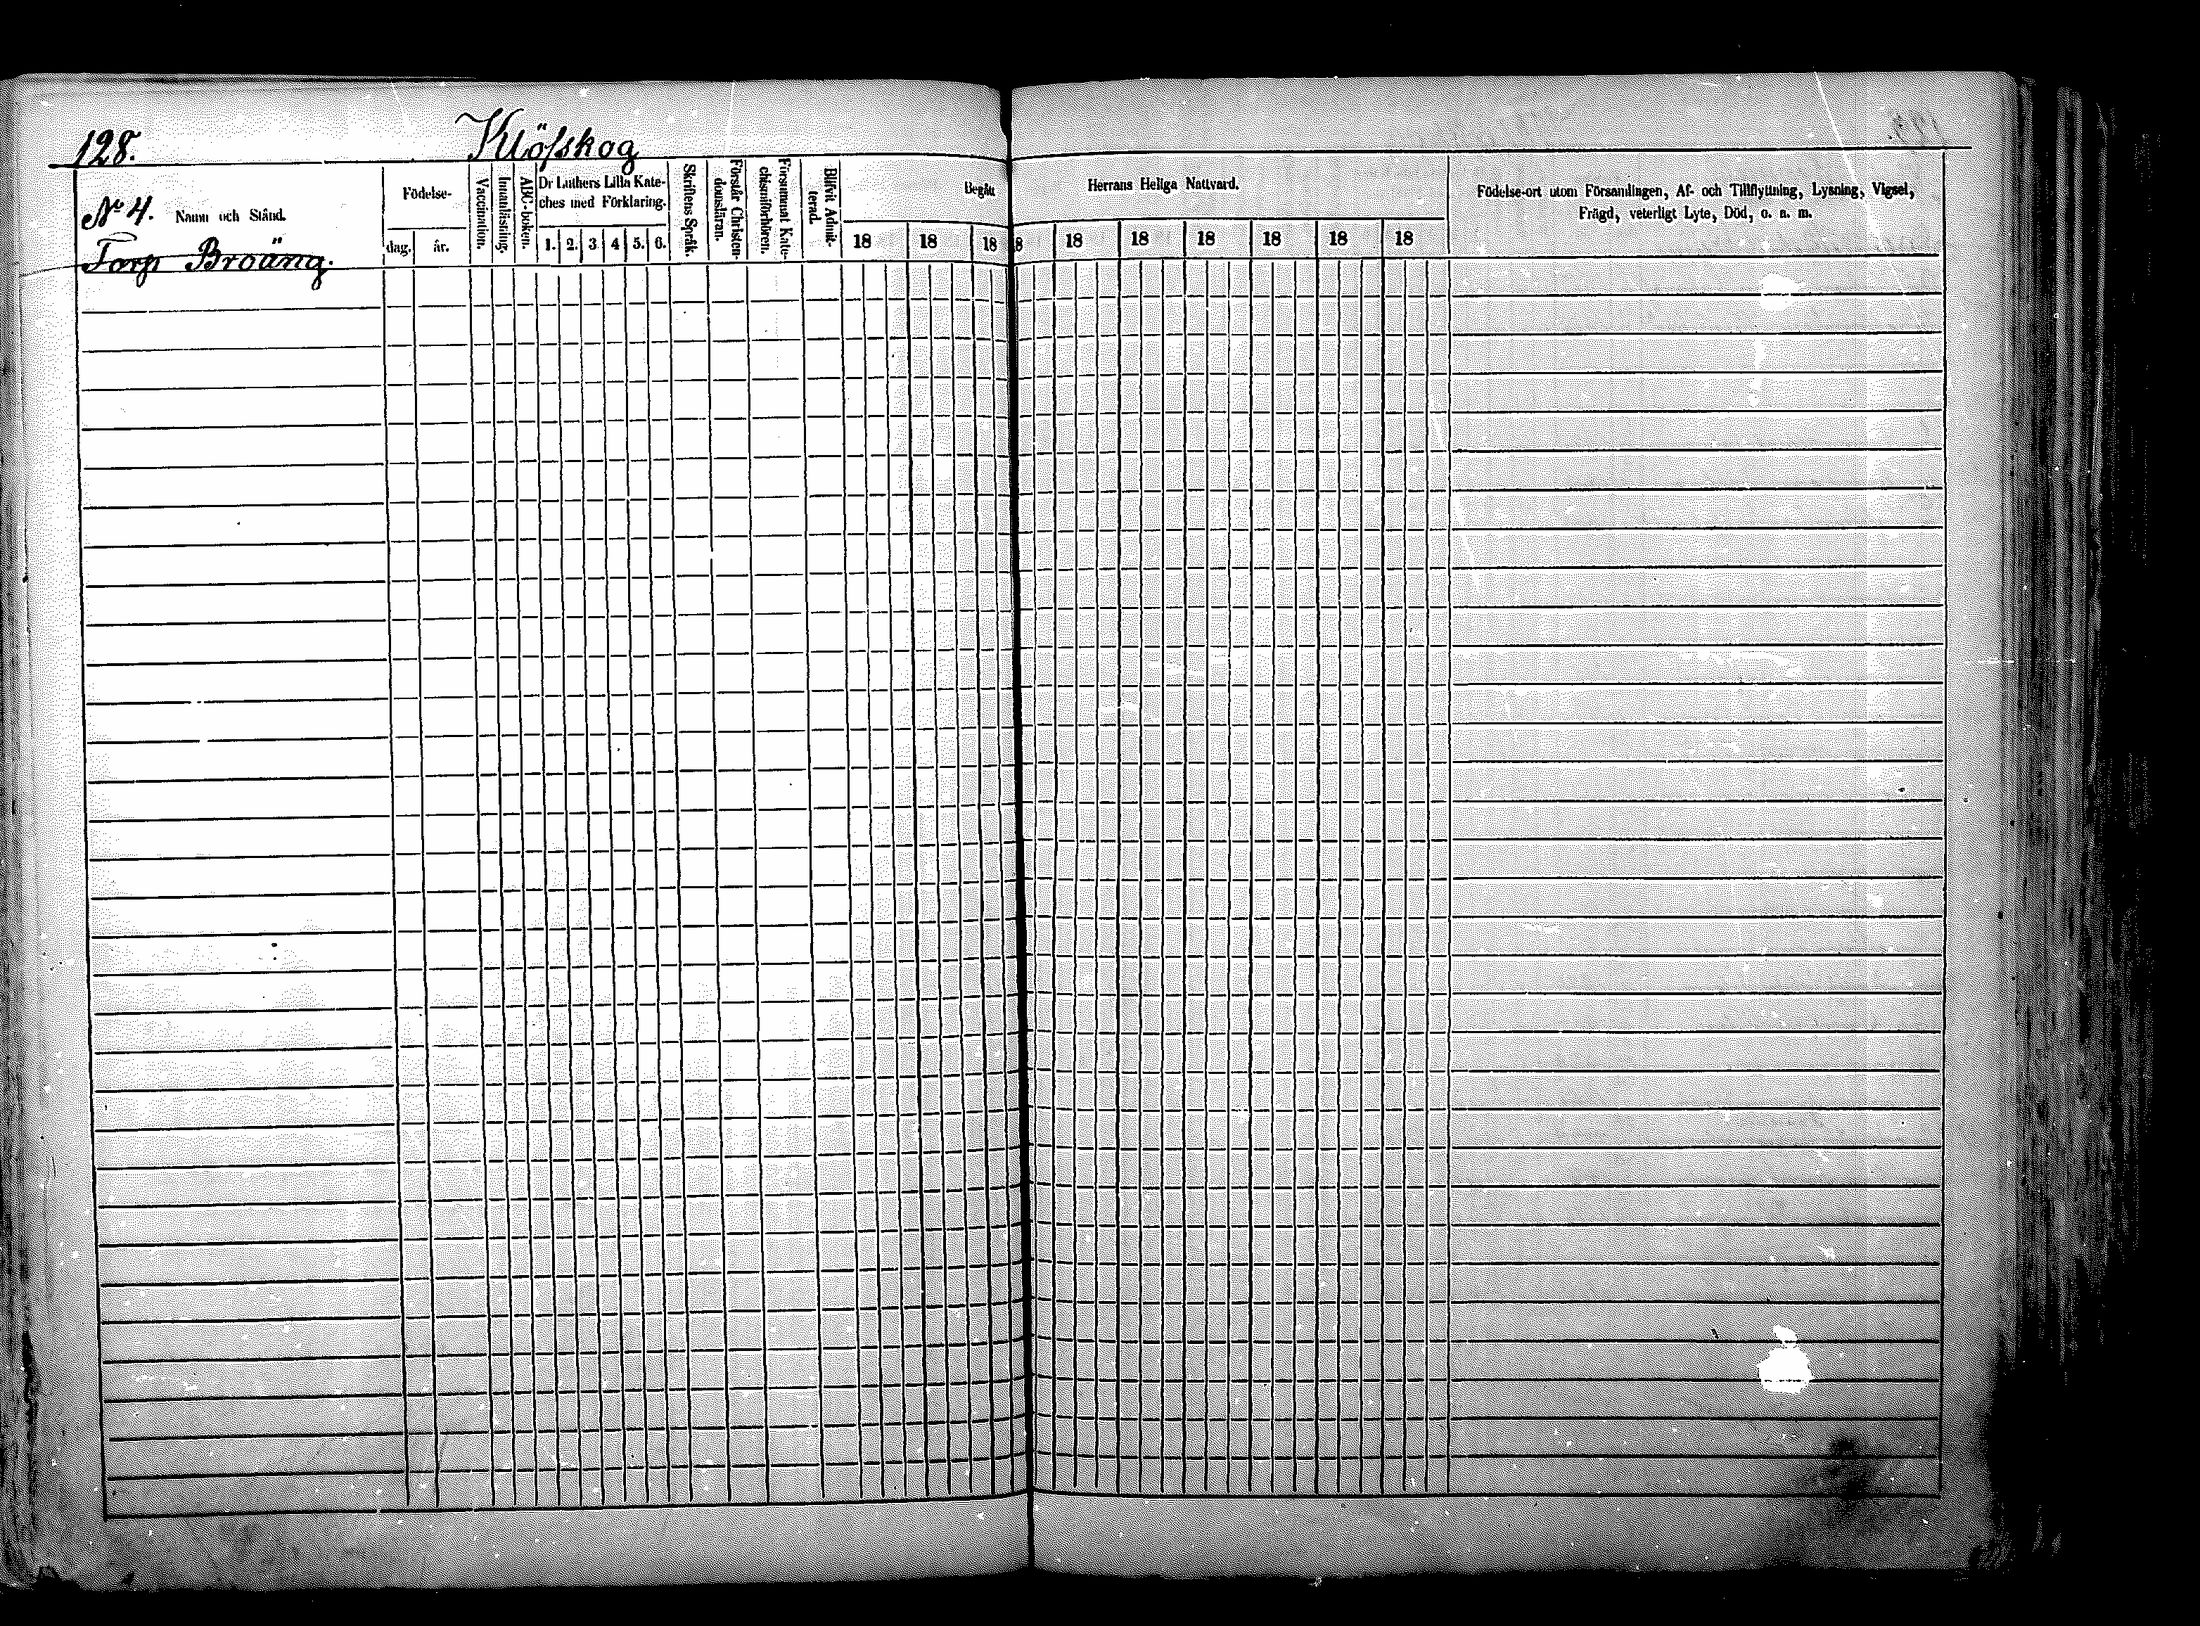 128.
Klöfskog
Nr 4. Namn och Stånd.
Torp Broäng.
Födelse-
dag. år.
Vaccination.
Innanläsning.
ABC-boken.
Dr Luthers Lilla Kate-
ches med Förklaring.
1. 2. 3 4 5. 6.
Skriftens Språk.
Förstår Christen-
domsläran.
Försummat Kate-
chismiförhören.
Blifvit Admit-
terad.
Begått Herrans Heliga Nattvard.
18 18 18 8 18 18 18 18 18 18
Födelse-ort utom Församlingen, Af- och Tillflyttning, Lysning, Vigsel,
Frägd, veterligt Lyte, Död, o. s. m.